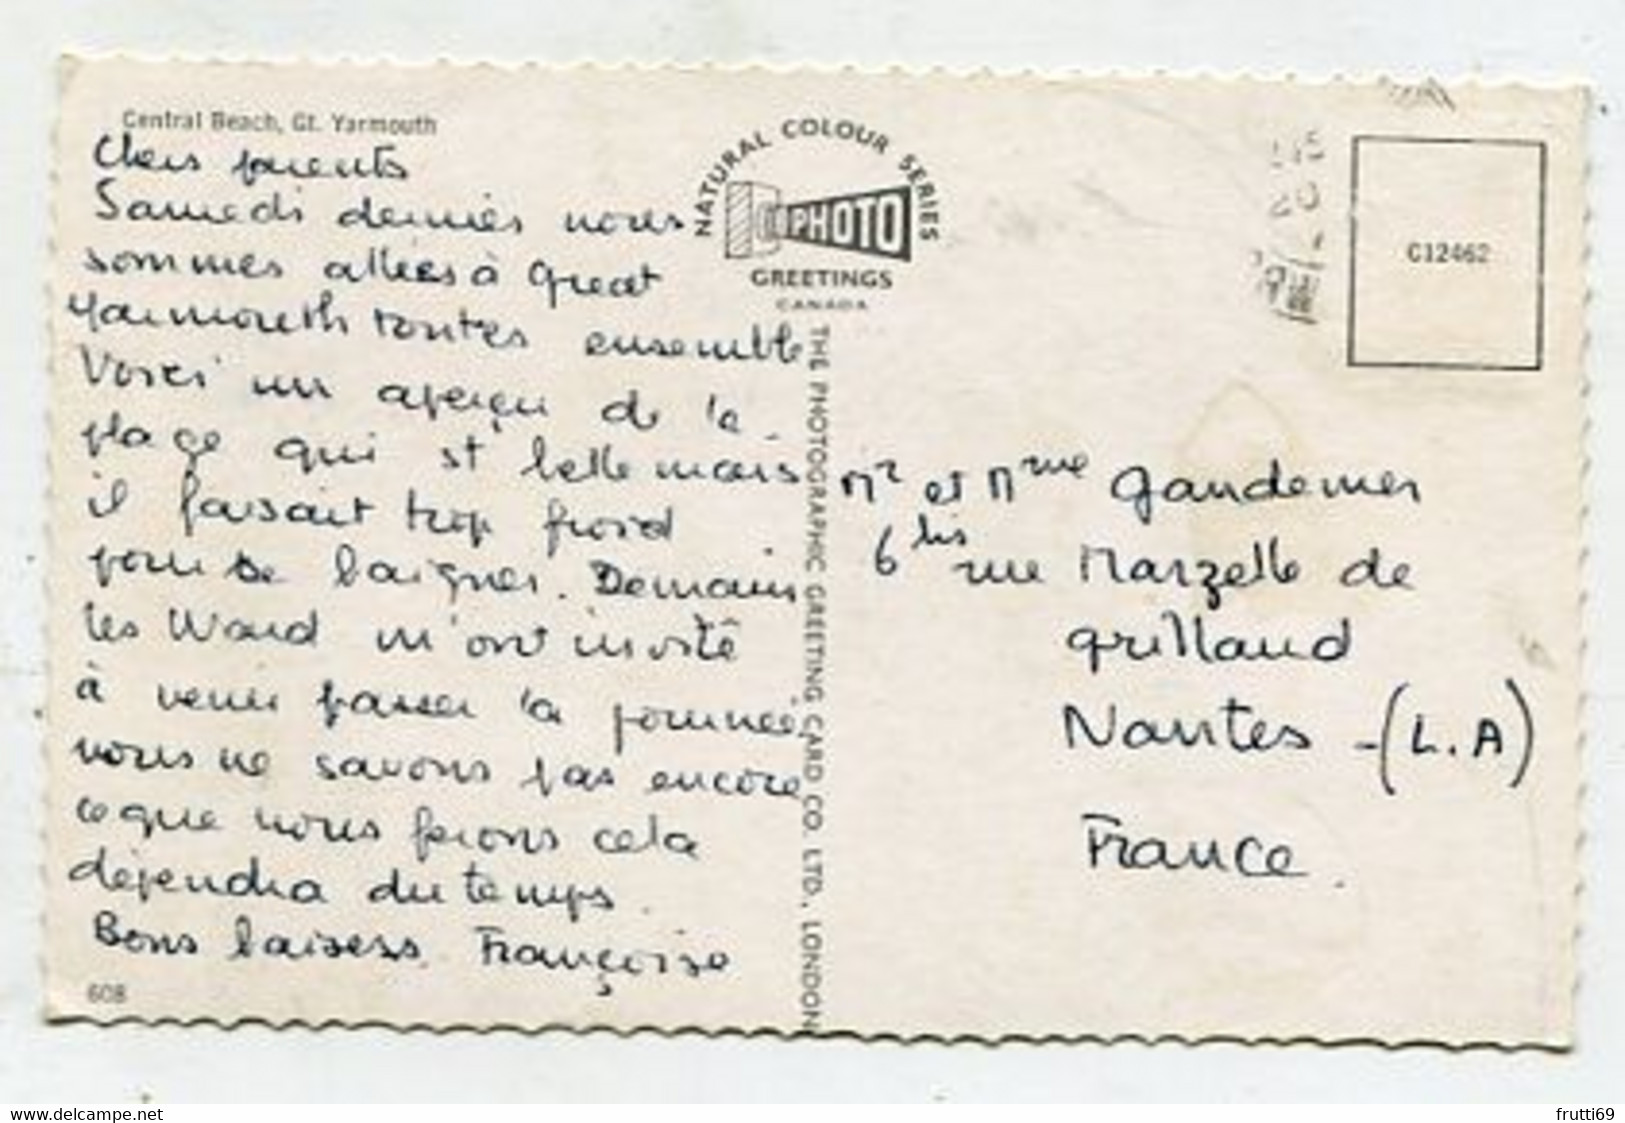 Central Beach, Gt. Yarmouth
Chers parents
Samedi dernier nous
sommes allées à Great
Yarmouth toutes ensemble
Voici un aperçu de la
plage qui st belle mais
il faisait trop froid
pour se baigner. Demain
les Ward m'ont invité
à venir passer la journée
nous ne savons pas encore
ce que nous ferons cela
dépendra du temps.
Bons baisers. Françoise
608
NATURAL COLOUR SERIES
PHOTO
GREETINGS
CANADA
THE PHOTOGRAPHIC GREETING CARD CO. LTD., LONDON
C12462
Mr et Mme Gandemer
6 bis rue Marzelle de
Grillaud
Nantes - (L.A)
France.
www.delcampe.net
frutti69